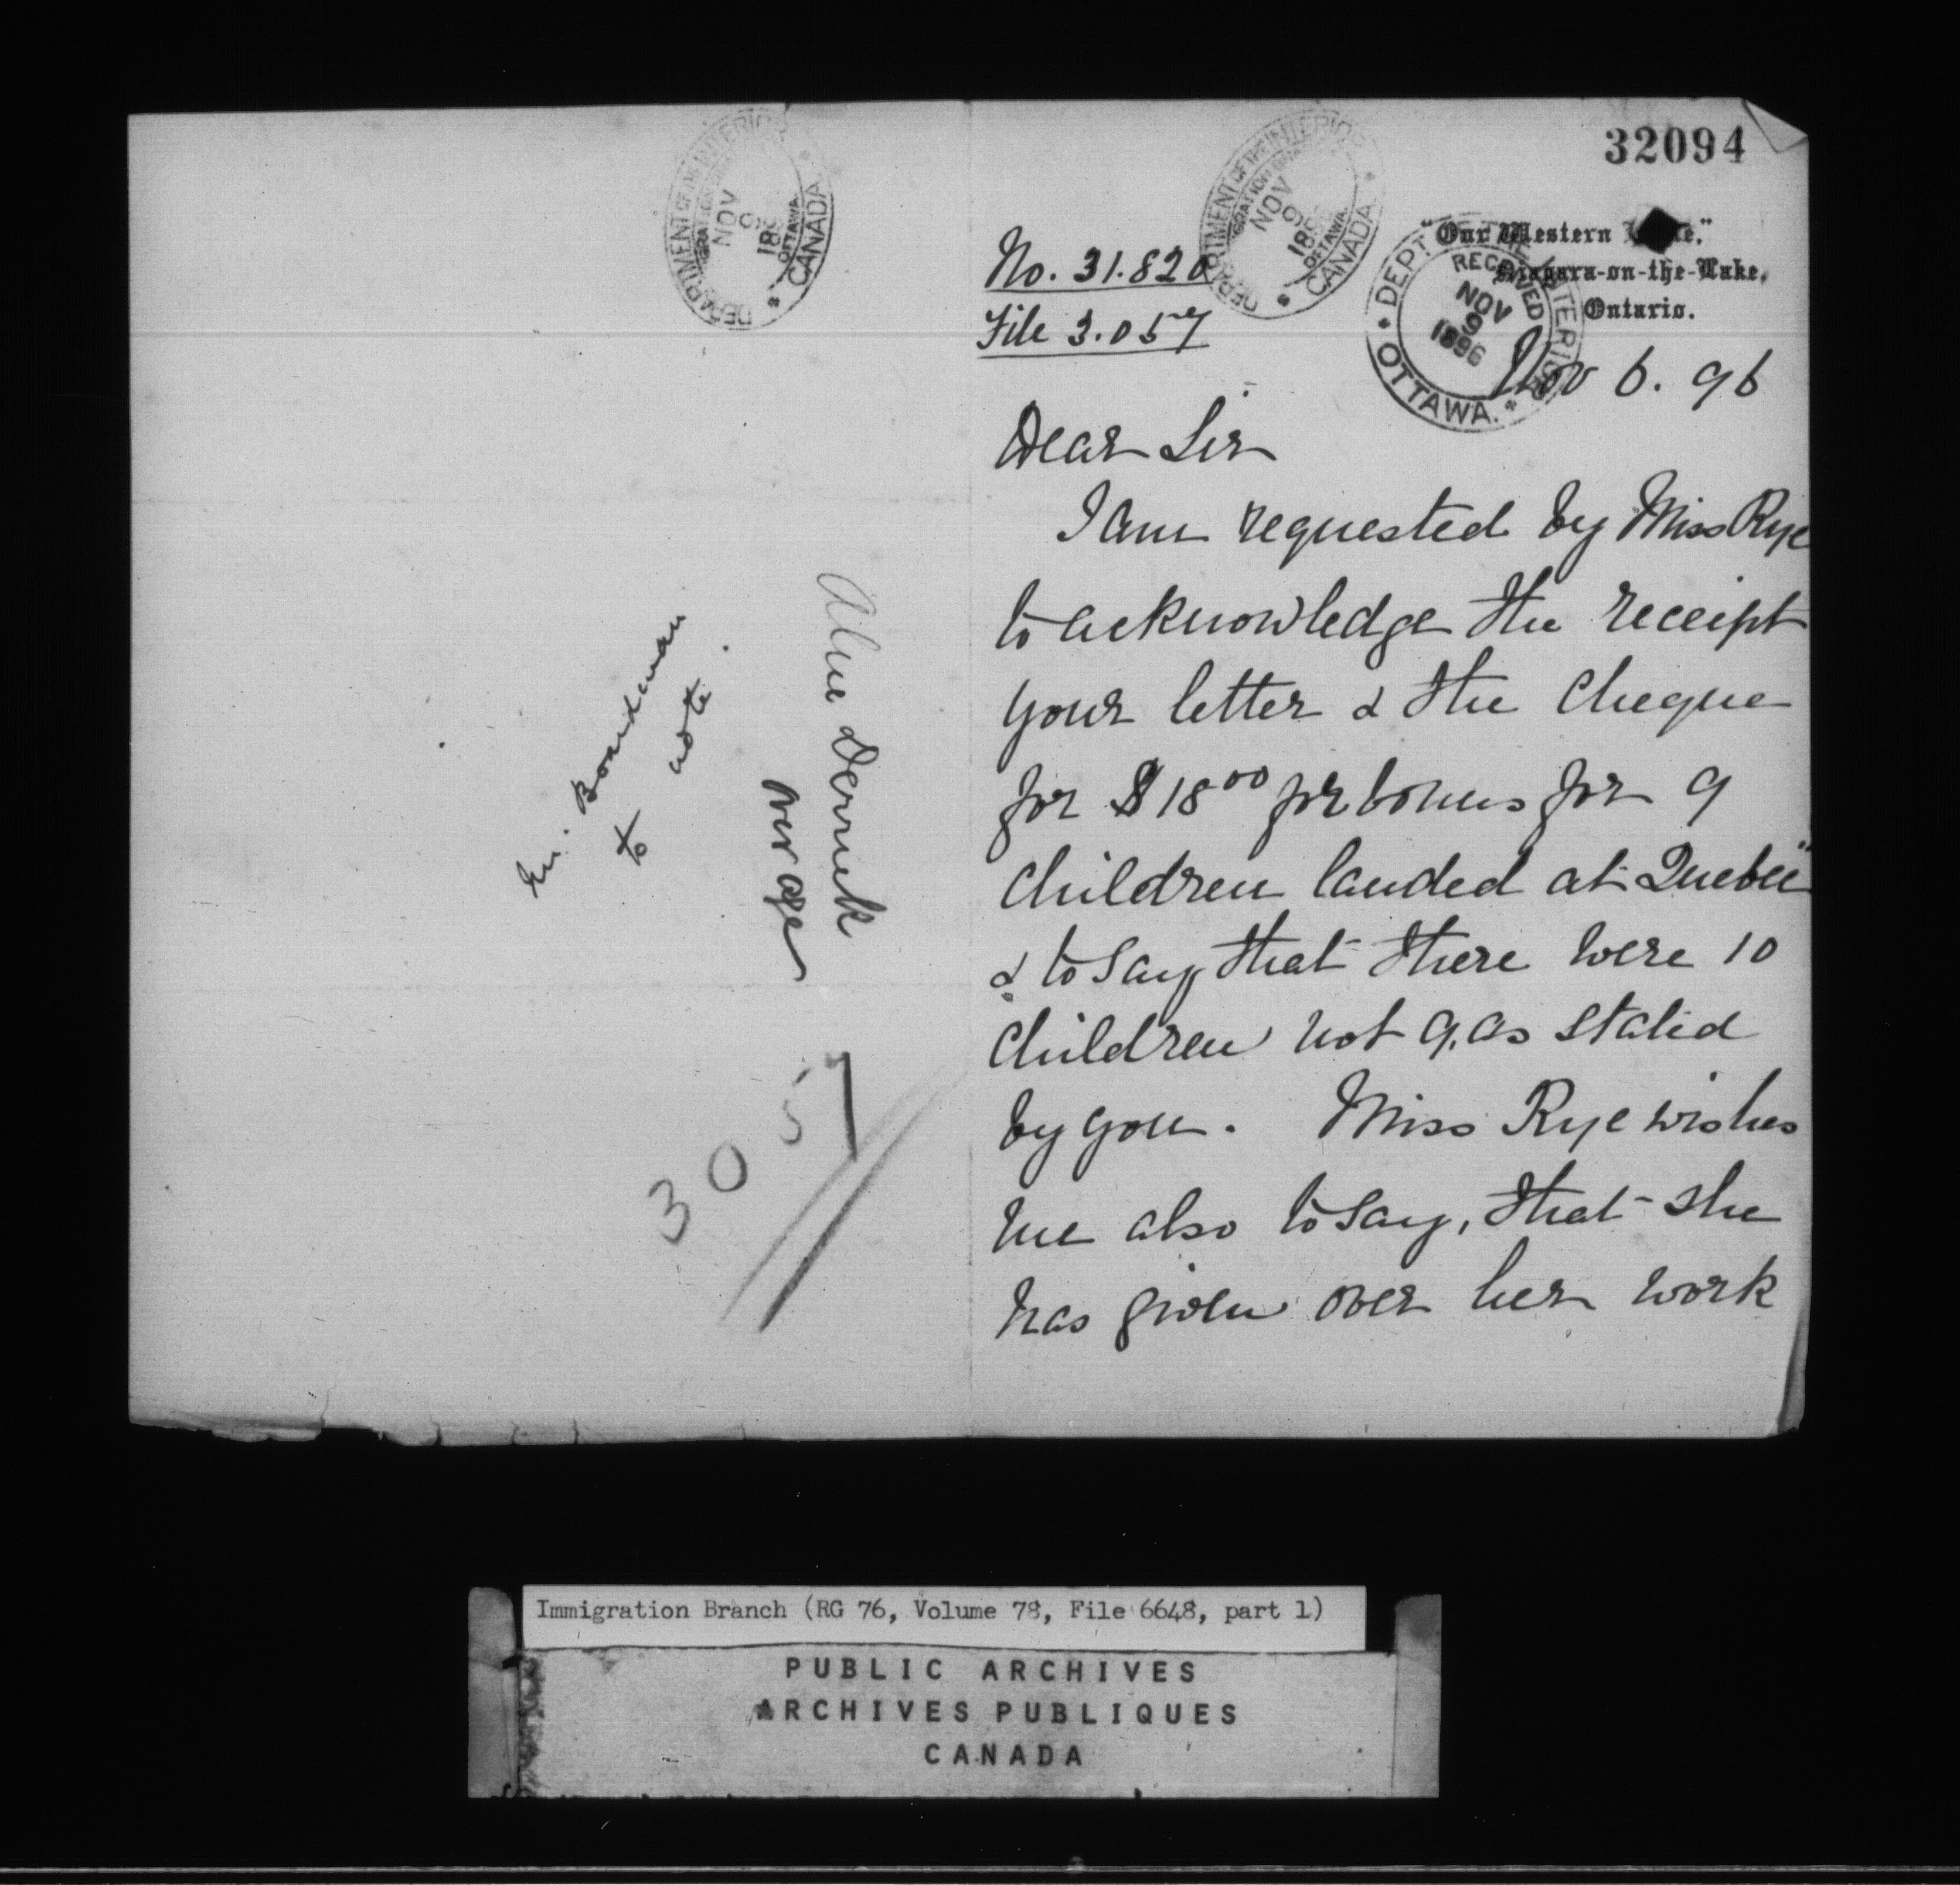 32094
"Our Western
Niagara-on-the-Lake,
Ontario.
No. 31.820
File 3.057
DEPARTMENT OF THE INTERIOR
NOV 9
OTTAWA.
CANADA.
DEPARTMENT OF THE INTERIOR
NOV 9
OTTAWA.
CANADA.
RECEIVED
NOV 9
1896
OTTAWA.
Nov 6. 96
Dear Sir
I am requested by Miss Rye
to acknowledge the receipt
your letter & the Cheque
for $18 00 for bonus for 9
Children landed at Quebec
& to say that there were 10
Children not 9, as stated
by you. Miss Rye wishes
me also to say, that she
has given over her work
Mr. Boardman
to note.
over age
3057
Immigration Branch (RG 76, Volume 78, File 6648, part 1)
PUBLIC ARCHIVES
ARCHIVES PUBLIQUES
CANADA